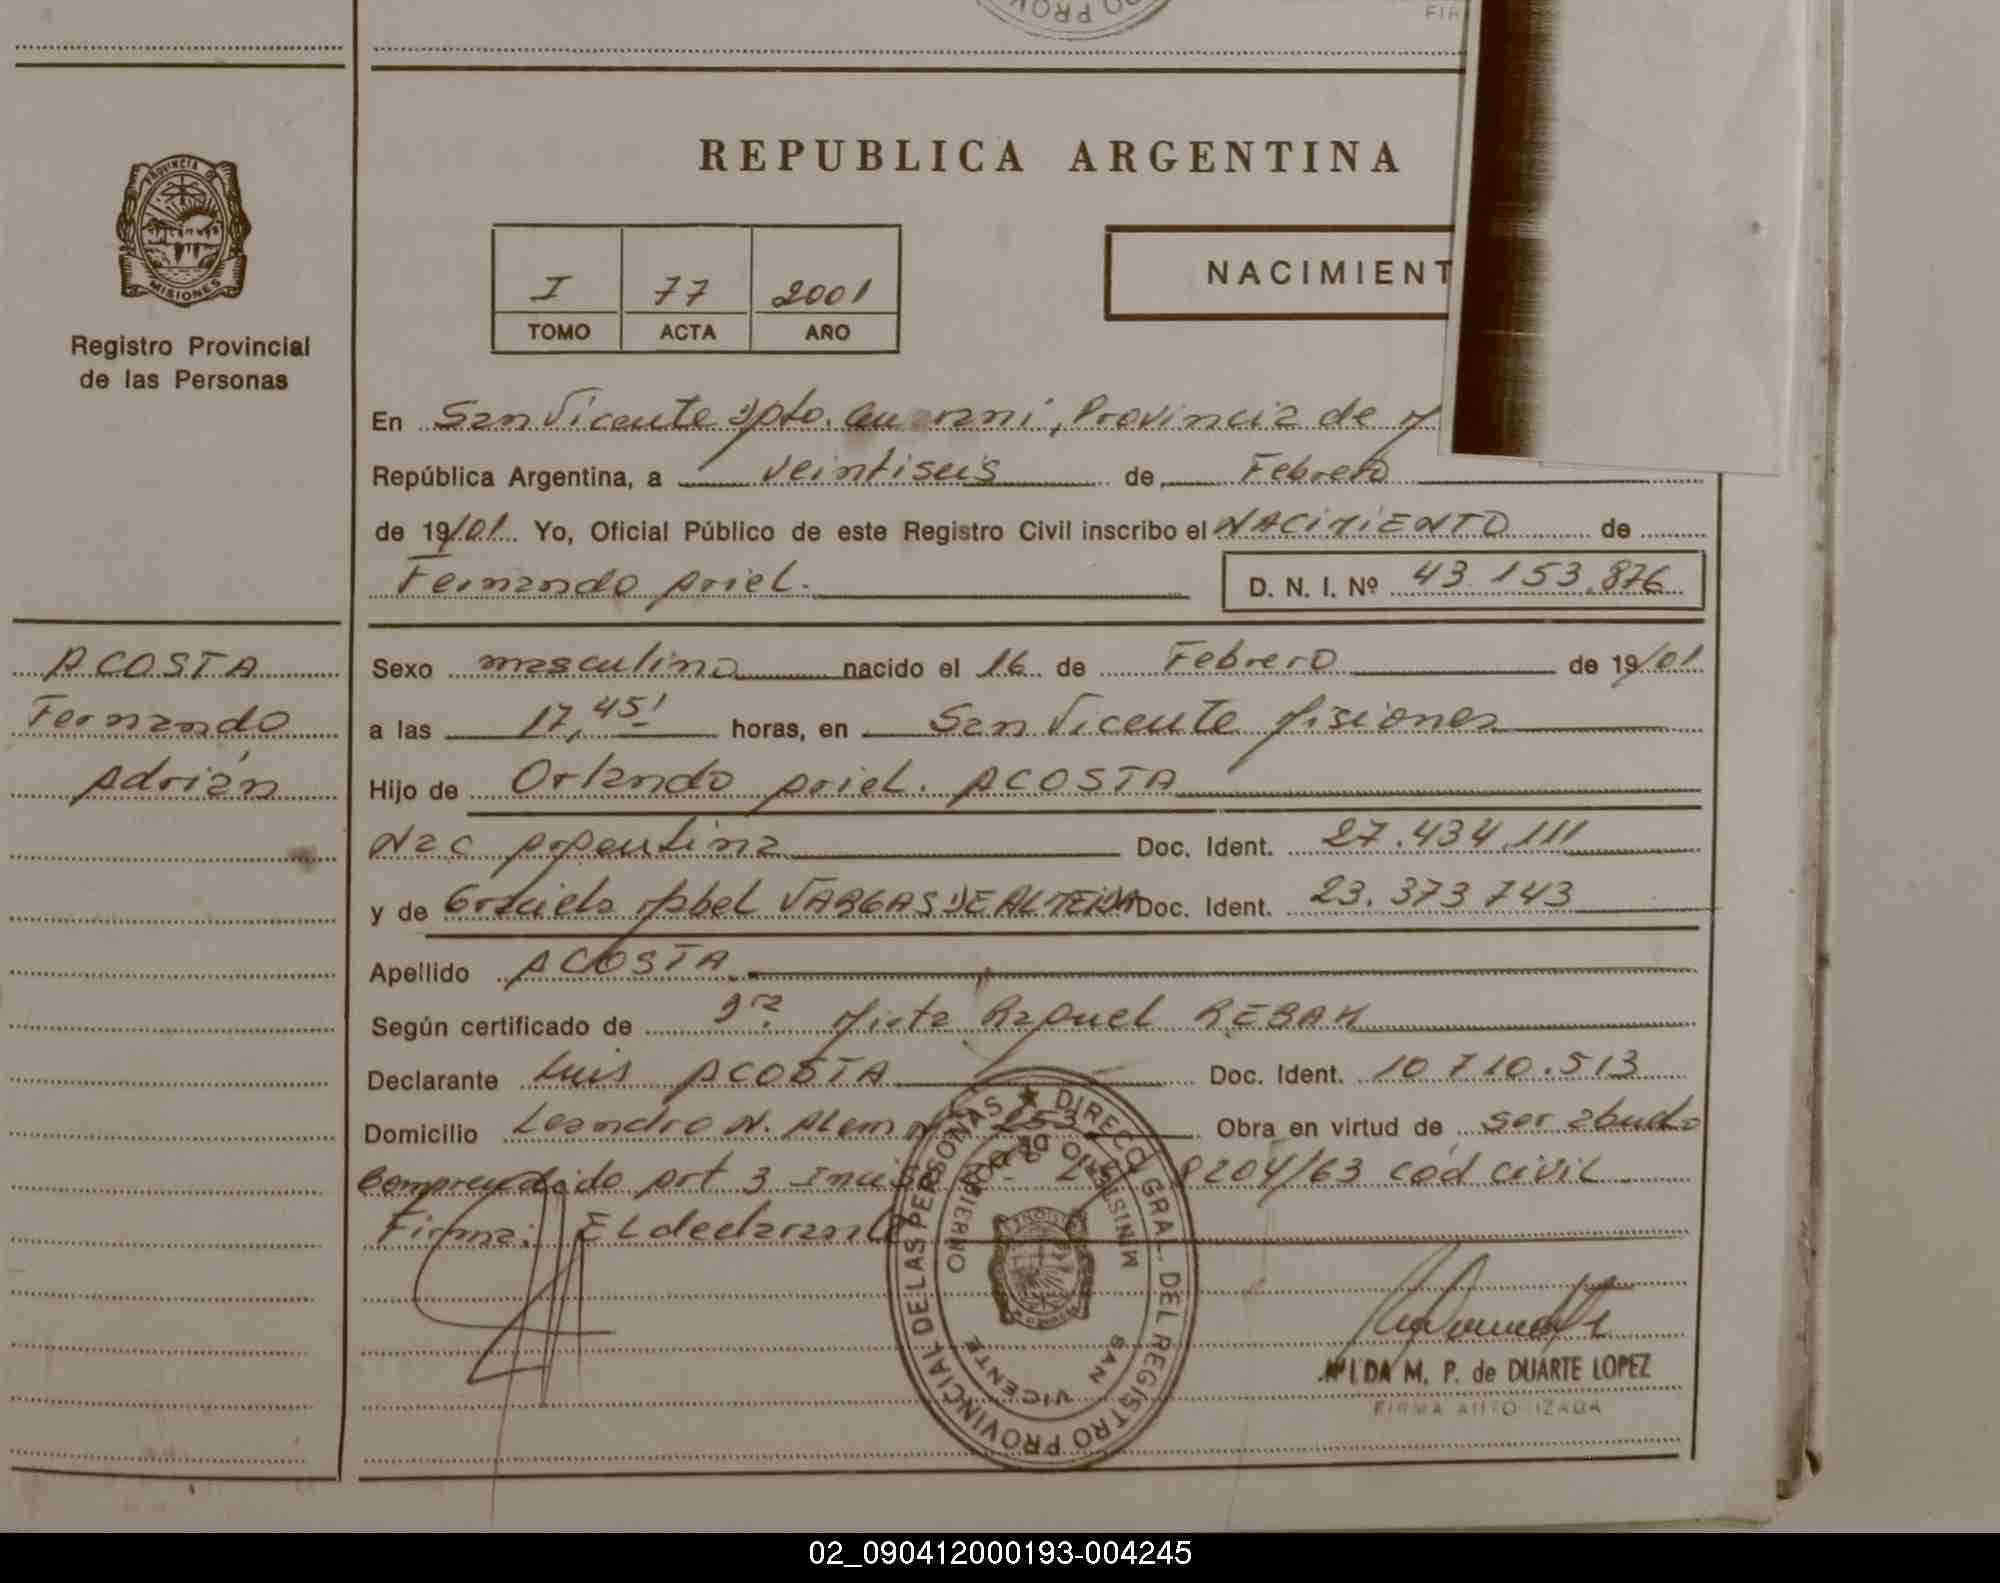 REPUBLICA ARGENTINA
PROVINCIA DE
MISIONES
Registro Provincial
de las Personas
I 77 2001
TOMO ACTA AÑO
NACIMIENT
En San Vicente Dpto. Guarani, Provincia de M
República Argentina, a veintiseis de Febrero
de 19/01 Yo, Oficial Público de este Registro Civil inscribo el NACIMIENTO de
Fernando Ariel. D. N. I. Nº 43.153.876
ACOSTA
Fernando
Adrián
Sexo masculino nacido el 16 de Febrero de 19/01
a las 17,45' horas, en San Vicente Misiones
Hijo de Orlando Ariel. ACOSTA
Nac Argentina Doc. Ident. 27.434.111
y de Graciela Mabel VARGAS DE ALMEIDA Doc. Ident. 23.373.743
Apellido ACOSTA
Según certificado de Dra. Mirta Raquel
Declarante Luis ACOSTA Doc. Ident. 10.710.513
Domicilio Leandro N. Alem Nº 253 Obra en virtud de ser abuelo
Comprendido Art 3 Inciso 8204/63 cód civil
Firma: El declarante
DIRECC. GRAL. DEL REGISTRO PROVINCIAL DE LAS PERSONAS
MINISTERIO DE GOBIERNO
SAN VICENTE
M. P. de DUARTE LOPEZ
FIRMA AUTORIZADA
02_090412000193-004245